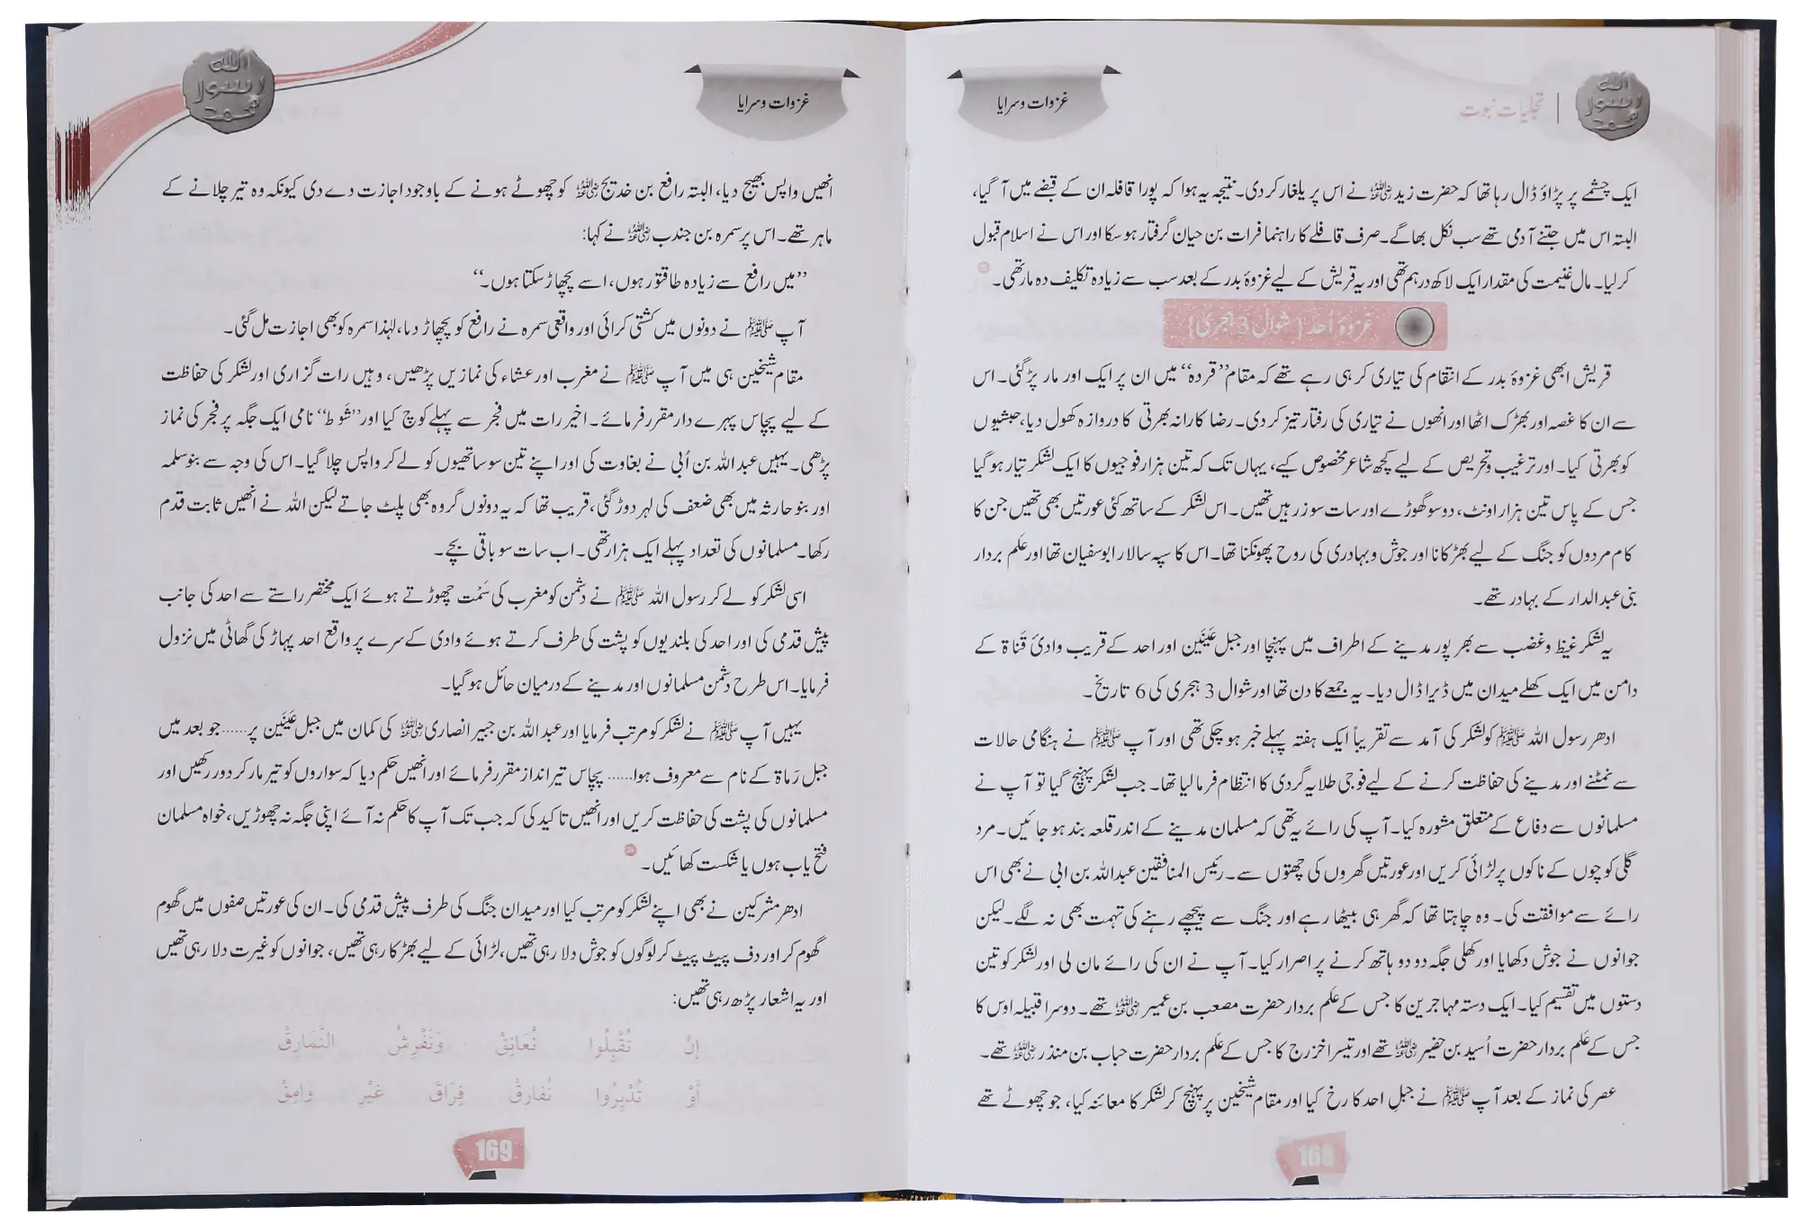 تجلیات نبوت
غزوات و سرایا
ایک چشمے پر پڑاؤ ڈال رہا تھا کہ حضرت زید رضی اللہ عنہ نے اس پر یلغار کر دی۔ نتیجہ یہ ہوا کہ پورا قافلہ ان کے قبضے میں آ گیا،
البتہ اس میں جتنے آدمی تھے سب نکل بھاگے۔ صرف قافلے کا راہنما فرات بن حیان گرفتار ہو سکا اور اس نے اسلام قبول
کر لیا۔ مال غنیمت کی مقدار ایک لاکھ درہم تھی اور یہ قریش کے لیے غزوۂ بدر کے بعد سب سے زیادہ تکلیف دہ مار تھی۔
غزوۂ اُحد {شوال 3 ہجری}
قریش ابھی غزوۂ بدر کے انتقام کی تیاری کر ہی رہے تھے کہ مقام ’’قردہ‘‘ میں ان پر ایک اور مار پڑ گئی۔ اس
سے ان کا غصہ اور بھڑک اٹھا اور انھوں نے تیاری کی رفتار تیز کر دی۔ رضا کارانہ بھرتی کا دروازہ کھول دیا، حبشیوں
کو بھرتی کیا۔ اور ترغیب و تحریص کے لیے کچھ شاعر مخصوص کیے، یہاں تک کہ تین ہزار فوجیوں کا ایک لشکر تیار ہو گیا
جس کے پاس تین ہزار اونٹ، دو سو گھوڑے اور سات سو زرہیں تھیں۔ اس لشکر کے ساتھ کئی عورتیں بھی تھیں جن کا
کام مردوں کو جنگ کے لیے بھڑکانا اور جوش و بہادری کی روح پھونکنا تھا۔ اس کا سپہ سالار ابوسفیان تھا اور عَلم بردار
بنی عبدالدار کے بہادر تھے۔
یہ لشکر غیظ و غضب سے بھر پور مدینے کے اطراف میں پہنچا اور جبل عَینَین اور احد کے قریب وادیٔ قَناۃ کے
دامن میں ایک کھلے میدان میں ڈیرا ڈال دیا۔ یہ جمعے کا دن تھا اور شوال 3 ہجری کی 6 تاریخ۔
ادھر رسول اللہ ﷺ کو لشکر کی آمد سے تقریباً ایک ہفتہ پہلے خبر ہو چکی تھی اور آپ ﷺ نے ہنگامی حالات
سے نمٹنے اور مدینے کی حفاظت کرنے کے لیے فوجی طلایہ گردی کا انتظام فرما لیا تھا۔ جب لشکر پہنچ گیا تو آپ نے
مسلمانوں سے دفاع کے متعلق مشورہ کیا۔ آپ کی رائے یہ تھی کہ مسلمان مدینے کے اندر قلعہ بند ہو جائیں۔ مرد
گلی کوچوں کے ناکوں پر لڑائی کریں اور عورتیں گھروں کی چھتوں سے۔ رئیس المنافقین عبداللہ بن ابی نے بھی اس
رائے سے موافقت کی۔ وہ چاہتا تھا کہ گھر ہی بیٹھا رہے اور جنگ سے پیچھے رہنے کی تہمت بھی نہ لگے۔ لیکن
جوانوں نے جوش دکھایا اور کھلی جگہ دو دو ہاتھ کرنے پر اصرار کیا۔ آپ نے ان کی رائے مان لی اور لشکر کو تین
دستوں میں تقسیم کیا۔ ایک دستہ مہاجرین کا جس کے عَلم بردار حضرت مصعب بن عمیر رضی اللہ عنہ تھے۔ دوسرا قبیلہ اوس کا
جس کے عَلم بردار حضرت اُسید بن حضیر رضی اللہ عنہ تھے اور تیسرا خزرج کا جس کے عَلم بردار حضرت حباب بن منذر رضی اللہ عنہ تھے۔
عصر کی نماز کے بعد آپ ﷺ نے جبلِ احد کا رخ کیا اور مقام شَیخین پر پہنچ کر لشکر کا معائنہ کیا، جو چھوٹے تھے
168
غزوات و سرایا
انھیں واپس بھیج دیا، البتہ رافع بن خدیج رضی اللہ عنہ کو چھوٹے ہونے کے باوجود اجازت دے دی کیونکہ وہ تیر چلانے کے
ماہر تھے۔ اس پر سمرہ بن جندب رضی اللہ عنہ نے کہا:
’’میں رافع سے زیادہ طاقتور ہوں، اسے پچھاڑ سکتا ہوں۔‘‘
آپ ﷺ نے دونوں میں کشتی کرائی اور واقعی سمرہ نے رافع کو پچھاڑ دیا، لہٰذا سمرہ کو بھی اجازت مل گئی۔
مقام شَیخین ہی میں آپ ﷺ نے مغرب اور عشاء کی نمازیں پڑھیں، وہیں رات گزاری اور لشکر کی حفاظت
کے لیے پچاس پہرے دار مقرر فرمائے۔ اخیر رات میں فجر سے پہلے کوچ کیا اور ’’شَوط‘‘ نامی ایک جگہ پر فجر کی نماز
پڑھی۔ یہیں عبداللہ بن اُبی نے بغاوت کی اور اپنے تین سو ساتھیوں کو لے کر واپس چلا گیا۔ اس کی وجہ سے بنو سلمہ
اور بنو حارثہ میں بھی ضعف کی لہر دوڑ گئی، قریب تھا کہ یہ دونوں گروہ بھی پلٹ جاتے لیکن اللہ نے انھیں ثابت قدم
رکھا۔ مسلمانوں کی تعداد پہلے ایک ہزار تھی۔ اب سات سو باقی بچے۔
اسی لشکر کو لے کر رسول اللہ ﷺ نے دشمن کو مغرب کی سَمْت چھوڑتے ہوئے ایک مختصر راستے سے احد کی جانب
پیش قدمی کی اور احد کی بلندیوں کو پشت کی طرف کرتے ہوئے وادی کے سرے پر واقع احد پہاڑ کی گھاٹی میں نزول
فرمایا۔ اس طرح دشمن مسلمانوں اور مدینے کے درمیان حائل ہو گیا۔
یہیں آپ ﷺ نے لشکر کو مرتب فرمایا اور عبداللہ بن جبیر انصاری رضی اللہ عنہ کی کمان میں جبل عَینَین پر...... جو بعد میں
جبل رَماۃ کے نام سے معروف ہوا...... پچاس تیر انداز مقرر فرمائے اور انھیں حکم دیا کہ سواروں کو تیر مار کر دور رکھیں اور
مسلمانوں کی پشت کی حفاظت کریں اور انھیں تاکید کی کہ جب تک آپ کا حکم نہ آئے اپنی جگہ نہ چھوڑیں، خواہ مسلمان
فتح یاب ہوں یا شکست کھائیں۔
ادھر مشرکین نے بھی اپنے لشکر کو مرتب کیا اور میدان جنگ کی طرف پیش قدمی کی۔ ان کی عورتیں صفوں میں گھوم
گھوم کر اور دف پیٹ پیٹ کر لوگوں کو جوش دلا رہی تھیں، لڑائی کے لیے بھڑکا رہی تھیں، جوانوں کو غیرت دلا رہی تھیں
اور یہ اشعار پڑھ رہی تھیں:
إِنْ تُقْبِلُوا نُعَانِقْ وَنَفْرِشُ النَّمَارِقْ
أَوْ تُدْبِرُوا نُفَارِقْ فِرَاقَ غَيْرِ وَامِقْ
169